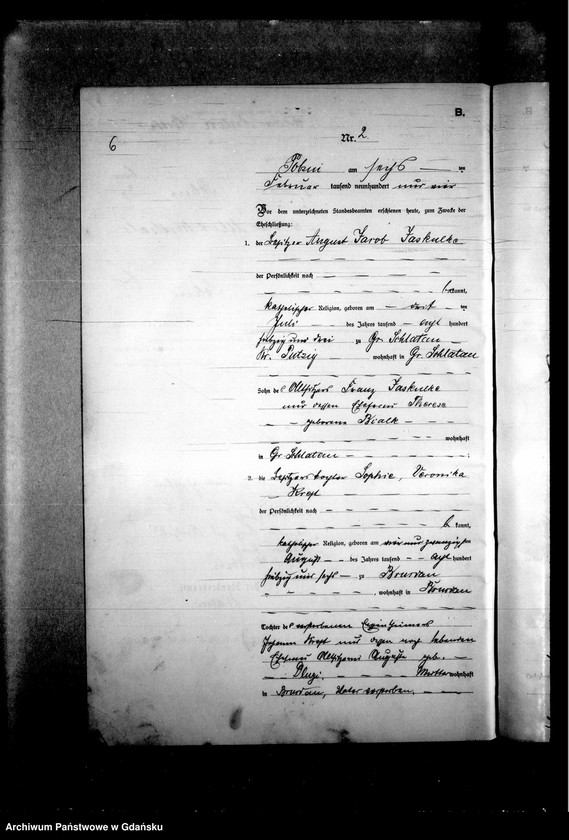 B.
6
Nr. 2
am sechs ten
Februar tausend neunhundert und vier
Vor dem unterzeichneten Standesbeamten erschienen heute, zum Zwecke der
Eheschließung:
1. der Besitzer August Jacob Jaskulke
der Persönlichkeit nach
kannt,
katholischer Religion, geboren am ten
Juli des Jahres tausend acht hundert
siebzig und drei zu Gr. Schlatau
Kr. Putzig wohnhaft in Gr. Schlatau
Sohn des Altsitzers Franz Jaskulke
und dessen Ehefrau Therese
geborene Bialk
wohnhaft
in Gr. Schlatau ;
2. die Besitzerstochter Sophie, Veronika
der Persönlichkeit nach
kannt,
katholischer Religion, geboren am vier und zwanzigsten
August des Jahres tausend acht hundert
siebzig und sechs zu
, wohnhaft in
Tochter des verstorbenen
Johann und dessen noch lebenden
Ehefrau Auguste geb.
Mutter wohnhaft
in , Vater verstorben.
Archiwum Państwowe w Gdańsku